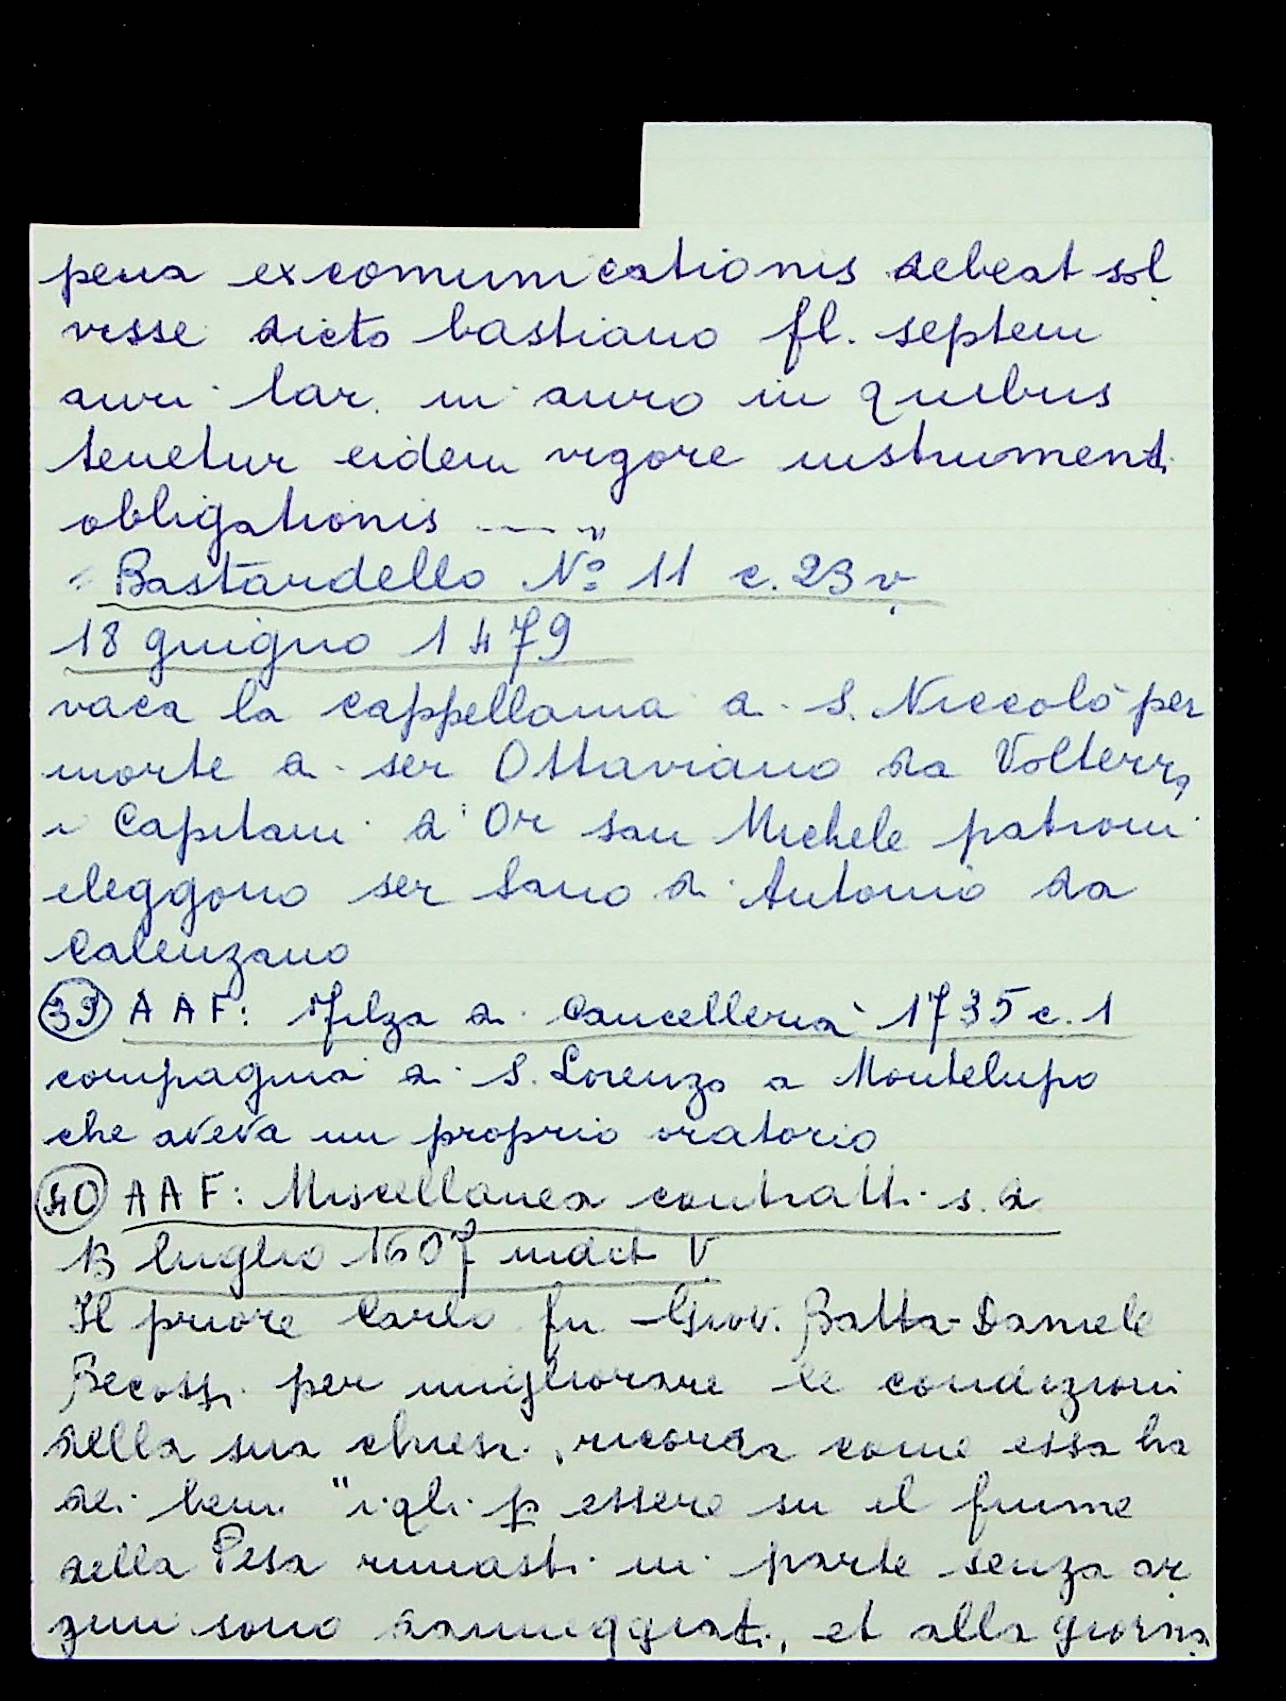 pena excomunicationis debeat sol
visse dicto bastiano fl. septem
auri lar. in auro in quibus
tenetur eidem vigore instrumenti
obligationis ---- "
Bastardello Nº 11 c. 23 v.
18 giugno 1479
vaca la cappellania di S. Niccolò per
morte di ser Ottaviano da Volterra
i Capitani d'Or san Michele patroni
eleggono ser Sano di Antonio da
Calenzano
39 AAF: Filza di Cancelleria 1735 c. 1
compagnia di S. Lorenzo a Montelupo
che aveva un proprio oratorio
40 AAF: Miscellanea contratti s. d.
13 luglio 1607 indict V
Il priore Carlo fu Giov. Batta Daniele
per migliorare le condizioni
della sua chiesa, ricorda come essa ha
dei beni "i qli p essere su il fiume
della Pesa rimasti in parte senza ar
gini sono danneggiati, et alla giorna